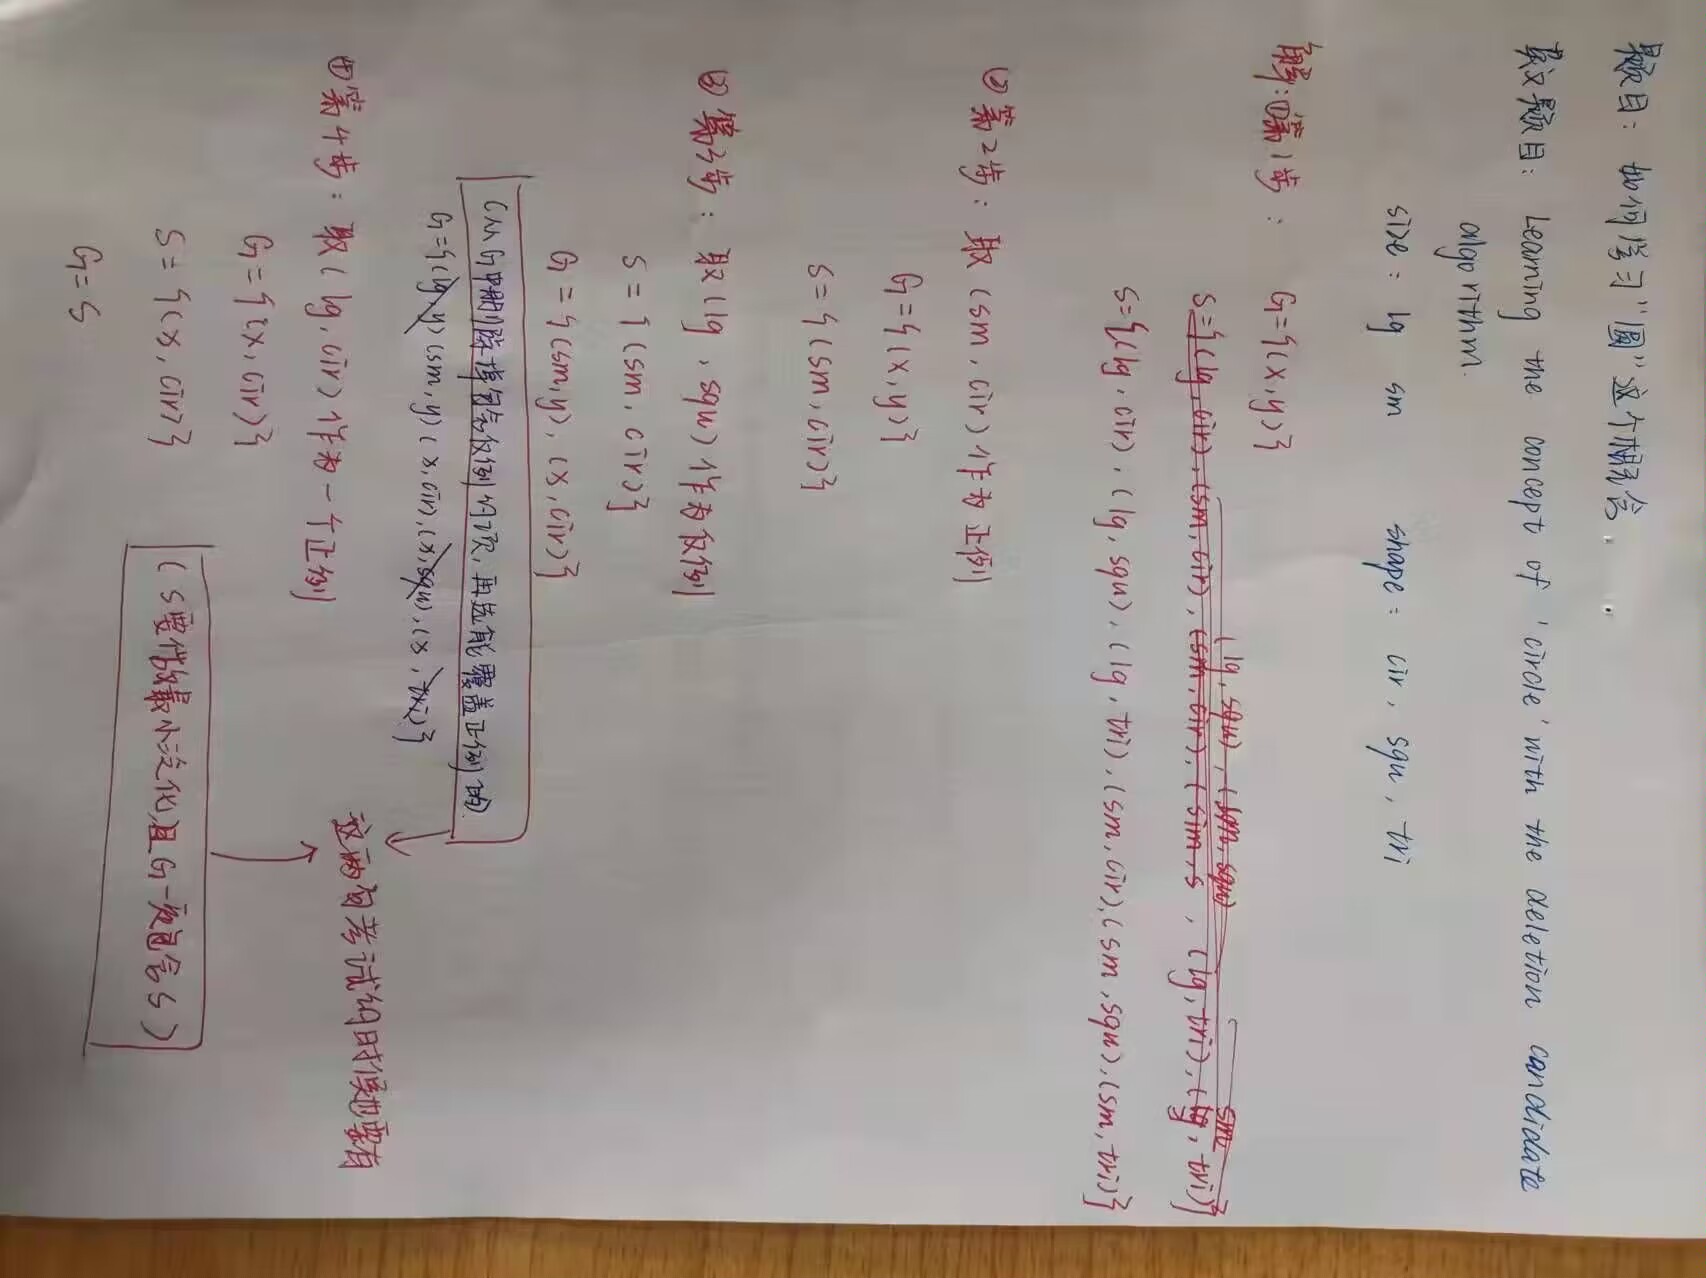 题目：如何学习"圆"这个概念.
英文题目：Learning the concept of 'circle' with the deletion candidate
algorithm.
size: lg sm shape: cir, squ, tri
解：①第1步： G={(x,y)}
(lg, squ), (sm, squ) sm
S={(lg, cir), (sm, cir), (sm, cir), (sim, s , (lg, tri), (lg, tri)}
S={(lg, cir), (lg, squ), (lg, tri), (sm, cir), (sm, squ), (sm, tri)}
②第2步：取(sm, cir)作为正例
G={(x,y)}
S={(sm, cir)}
③第3步：取(lg, squ)作为反例
S={(sm, cir)}
G={(sm,y), (x,cir)}
(从G中删除掉包含反例的项，再选能覆盖正例的.
G={(lg,y)(sm,y)(x,cir),(x,squ),(x,tri)}
这两句考试的时候也要有
④第4步：取(lg, cir)作为一个正例
G={(x, cir)}
S={(x, cir)}
(S要做最小泛化,且G一定包含S)
G=S